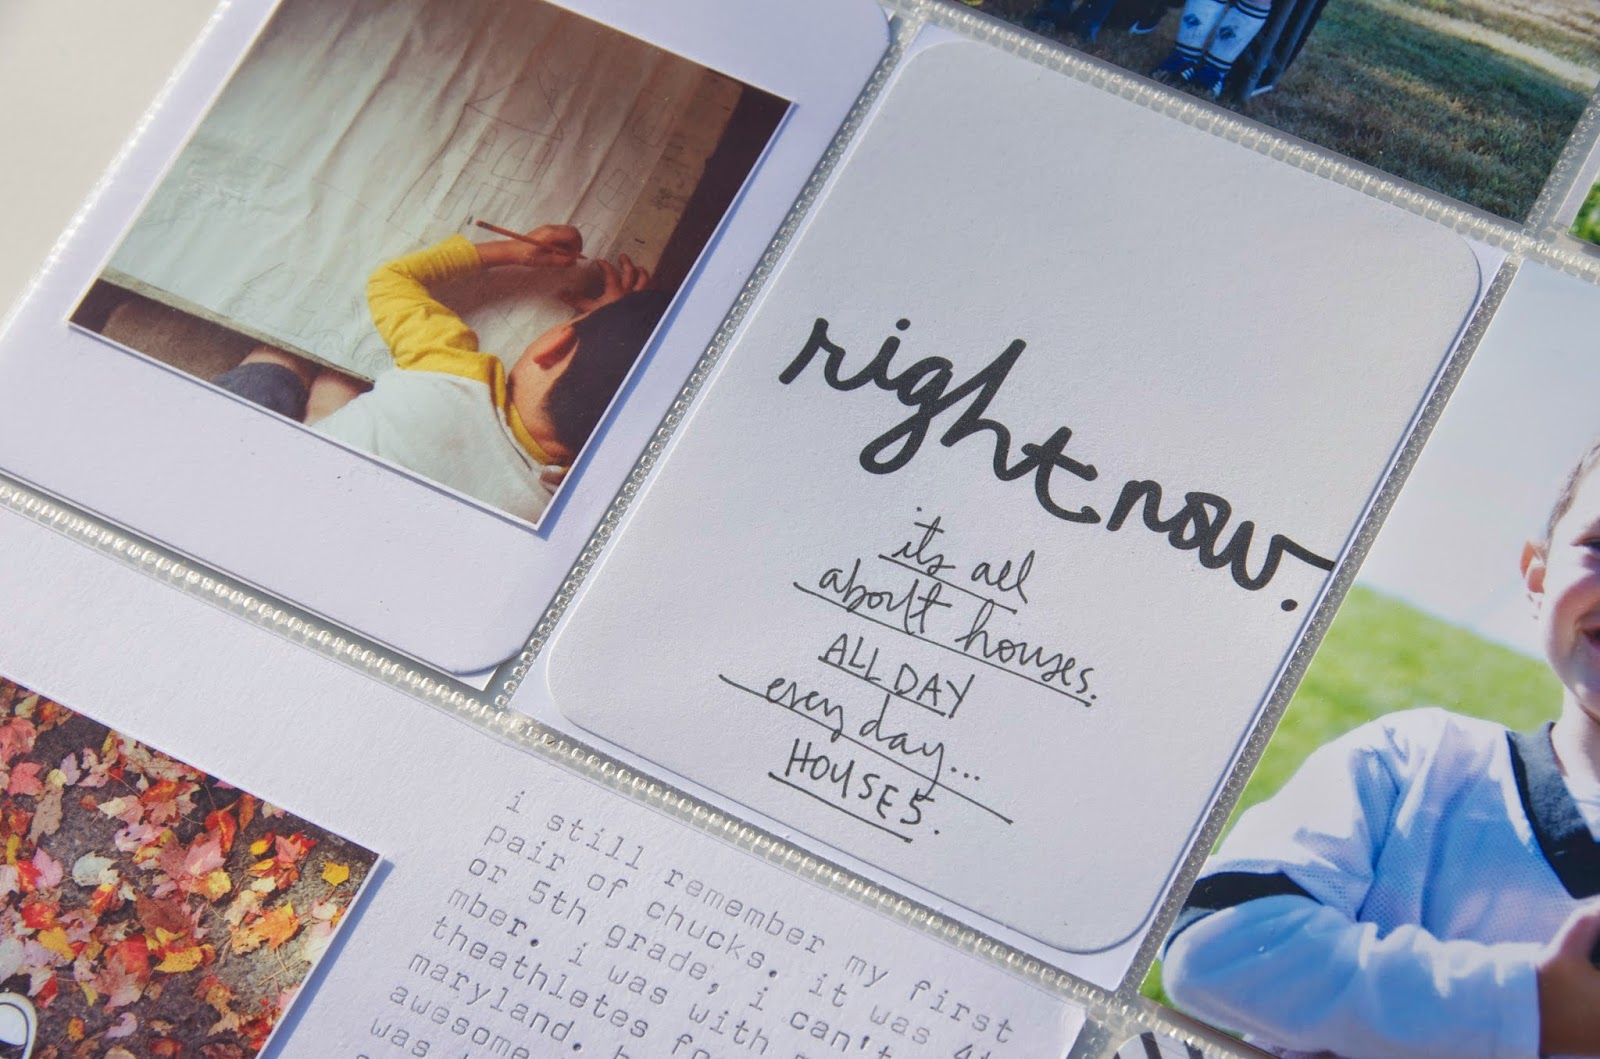 right now.
its all
about houses.
ALL DAY
every day...
HOUSES.
i still remember my first
pair of chucks. it was
or 5th grade, i can't
mber. i was with
theathletes
maryland.
awesome
was